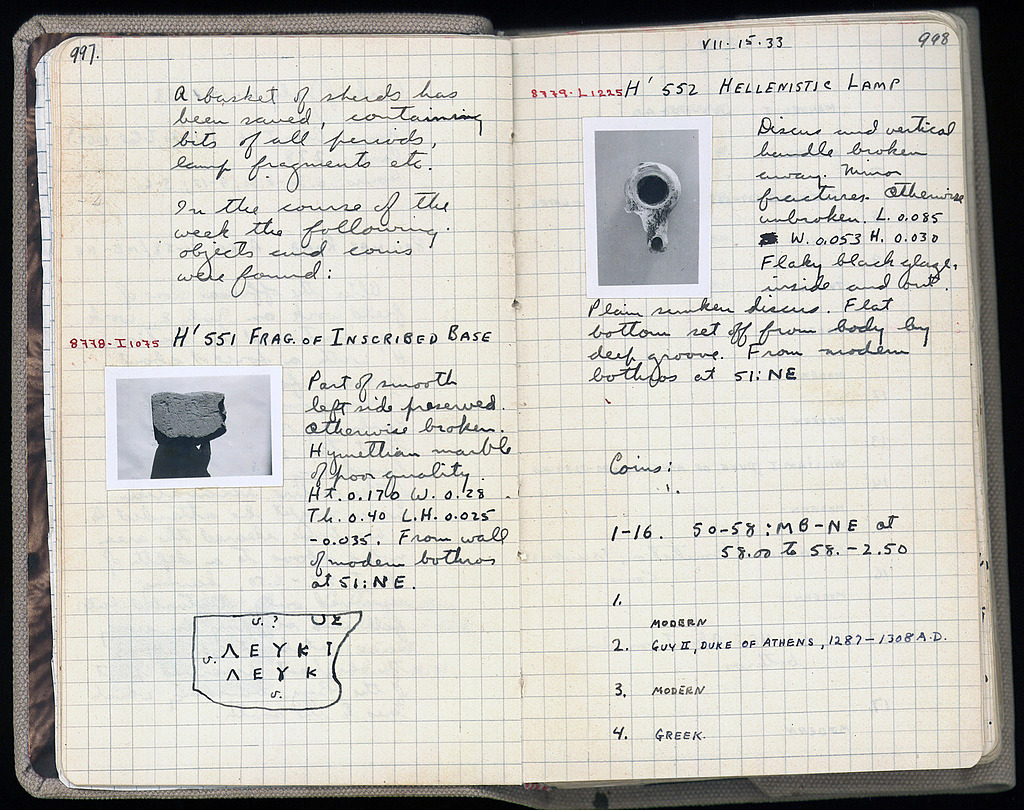 997.
A basket of sherds has
been saved, containing
bits of all periods,
lamp fragments etc.
In the course of the
week the following
objects and coins
were found:
8778·I1075 H' 551 FRAG. OF INSCRIBED BASE
Part of smooth
left side preserved.
Otherwise broken.
Hymettian marble
of poor quality.
Ht. 0.170 W. 0.28
Th. 0.40 L.H. 0.025
-0.035. From wall
of modern bothros
at 51:NE.
S. ? ΟΣ
S. ΛΕΥΚΙ
ΛΕΥΚ
S.
VII·15·33
998
8779·L1225 H' 552 HELLENISTIC LAMP
Discus and vertical
handle broken
away. Minor
fractures. Otherwise
unbroken. L. 0.085
W. 0.053 H. 0.030
Flaky black glaze,
inside and out.
Plain sunken discus. Flat
bottom set off from body by
deep groove. From modern
bothros at 51:NE
Coins:
1-16. 50-58:MB-NE at
58.00 to 58.-2.50
1.
MODERN
2. GUY II, DUKE OF ATHENS, 1287-1308 A.D.
3. MODERN
4. GREEK.